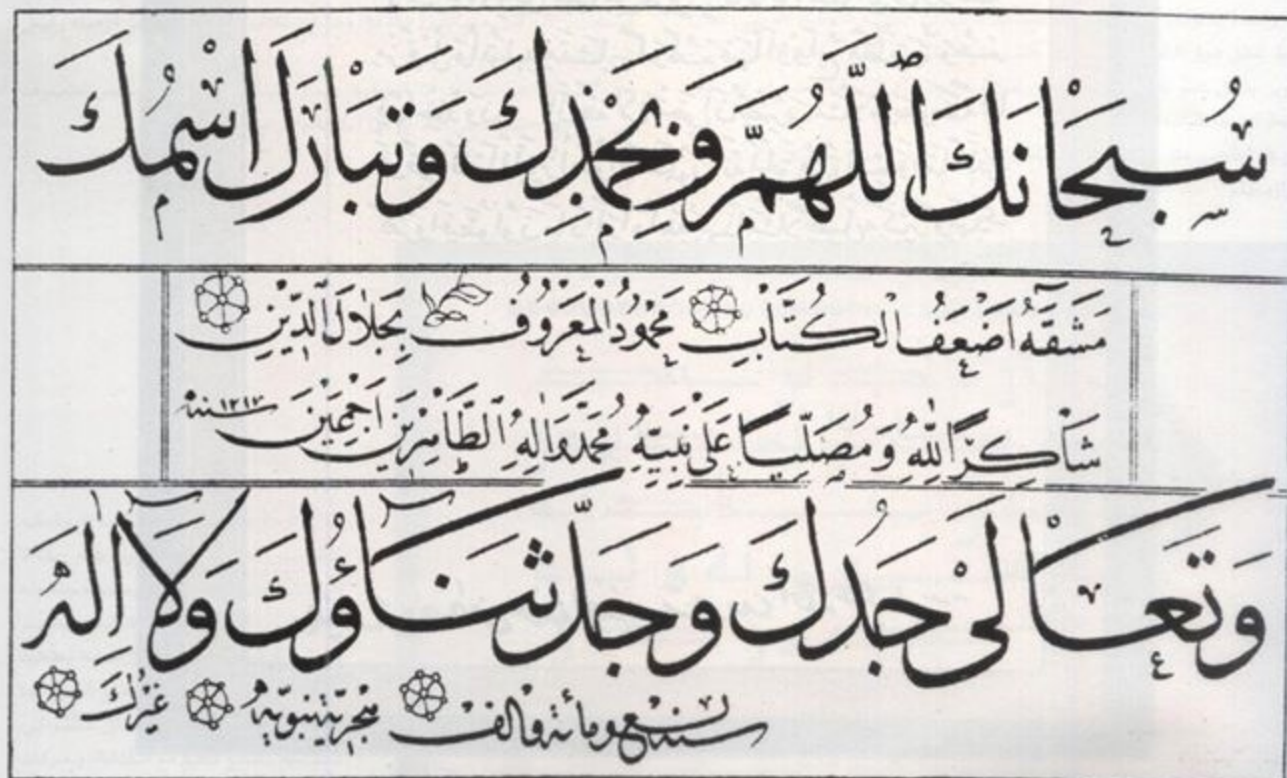 سُبْحَانَكَ اللَّهُمَّ وَبِحَمْدِكَ وَتَبَارَكَ اسْمُكَ
مَشَقَهُ اَضْعَفُ الْكُتَّابِ مَحْمُودُ الْمَعْرُوفُ بِجَلَالِ الدِّينِ
شَاكِرًا لِلّٰهِ وَمُصَلِّيًا عَلَى نَبِيِّهِ مُحَمَّدٍ وَاٰلِهِ الطَّاهِرِينَ اَجْمَعِينَ سنة ١٢١٢
وَتَعَالَى جَدُّكَ وَجَلَّ ثَنَاؤُكَ وَلَا اِلٰهَ
غَيْرُكَ هجرية نبوية ومائة والف